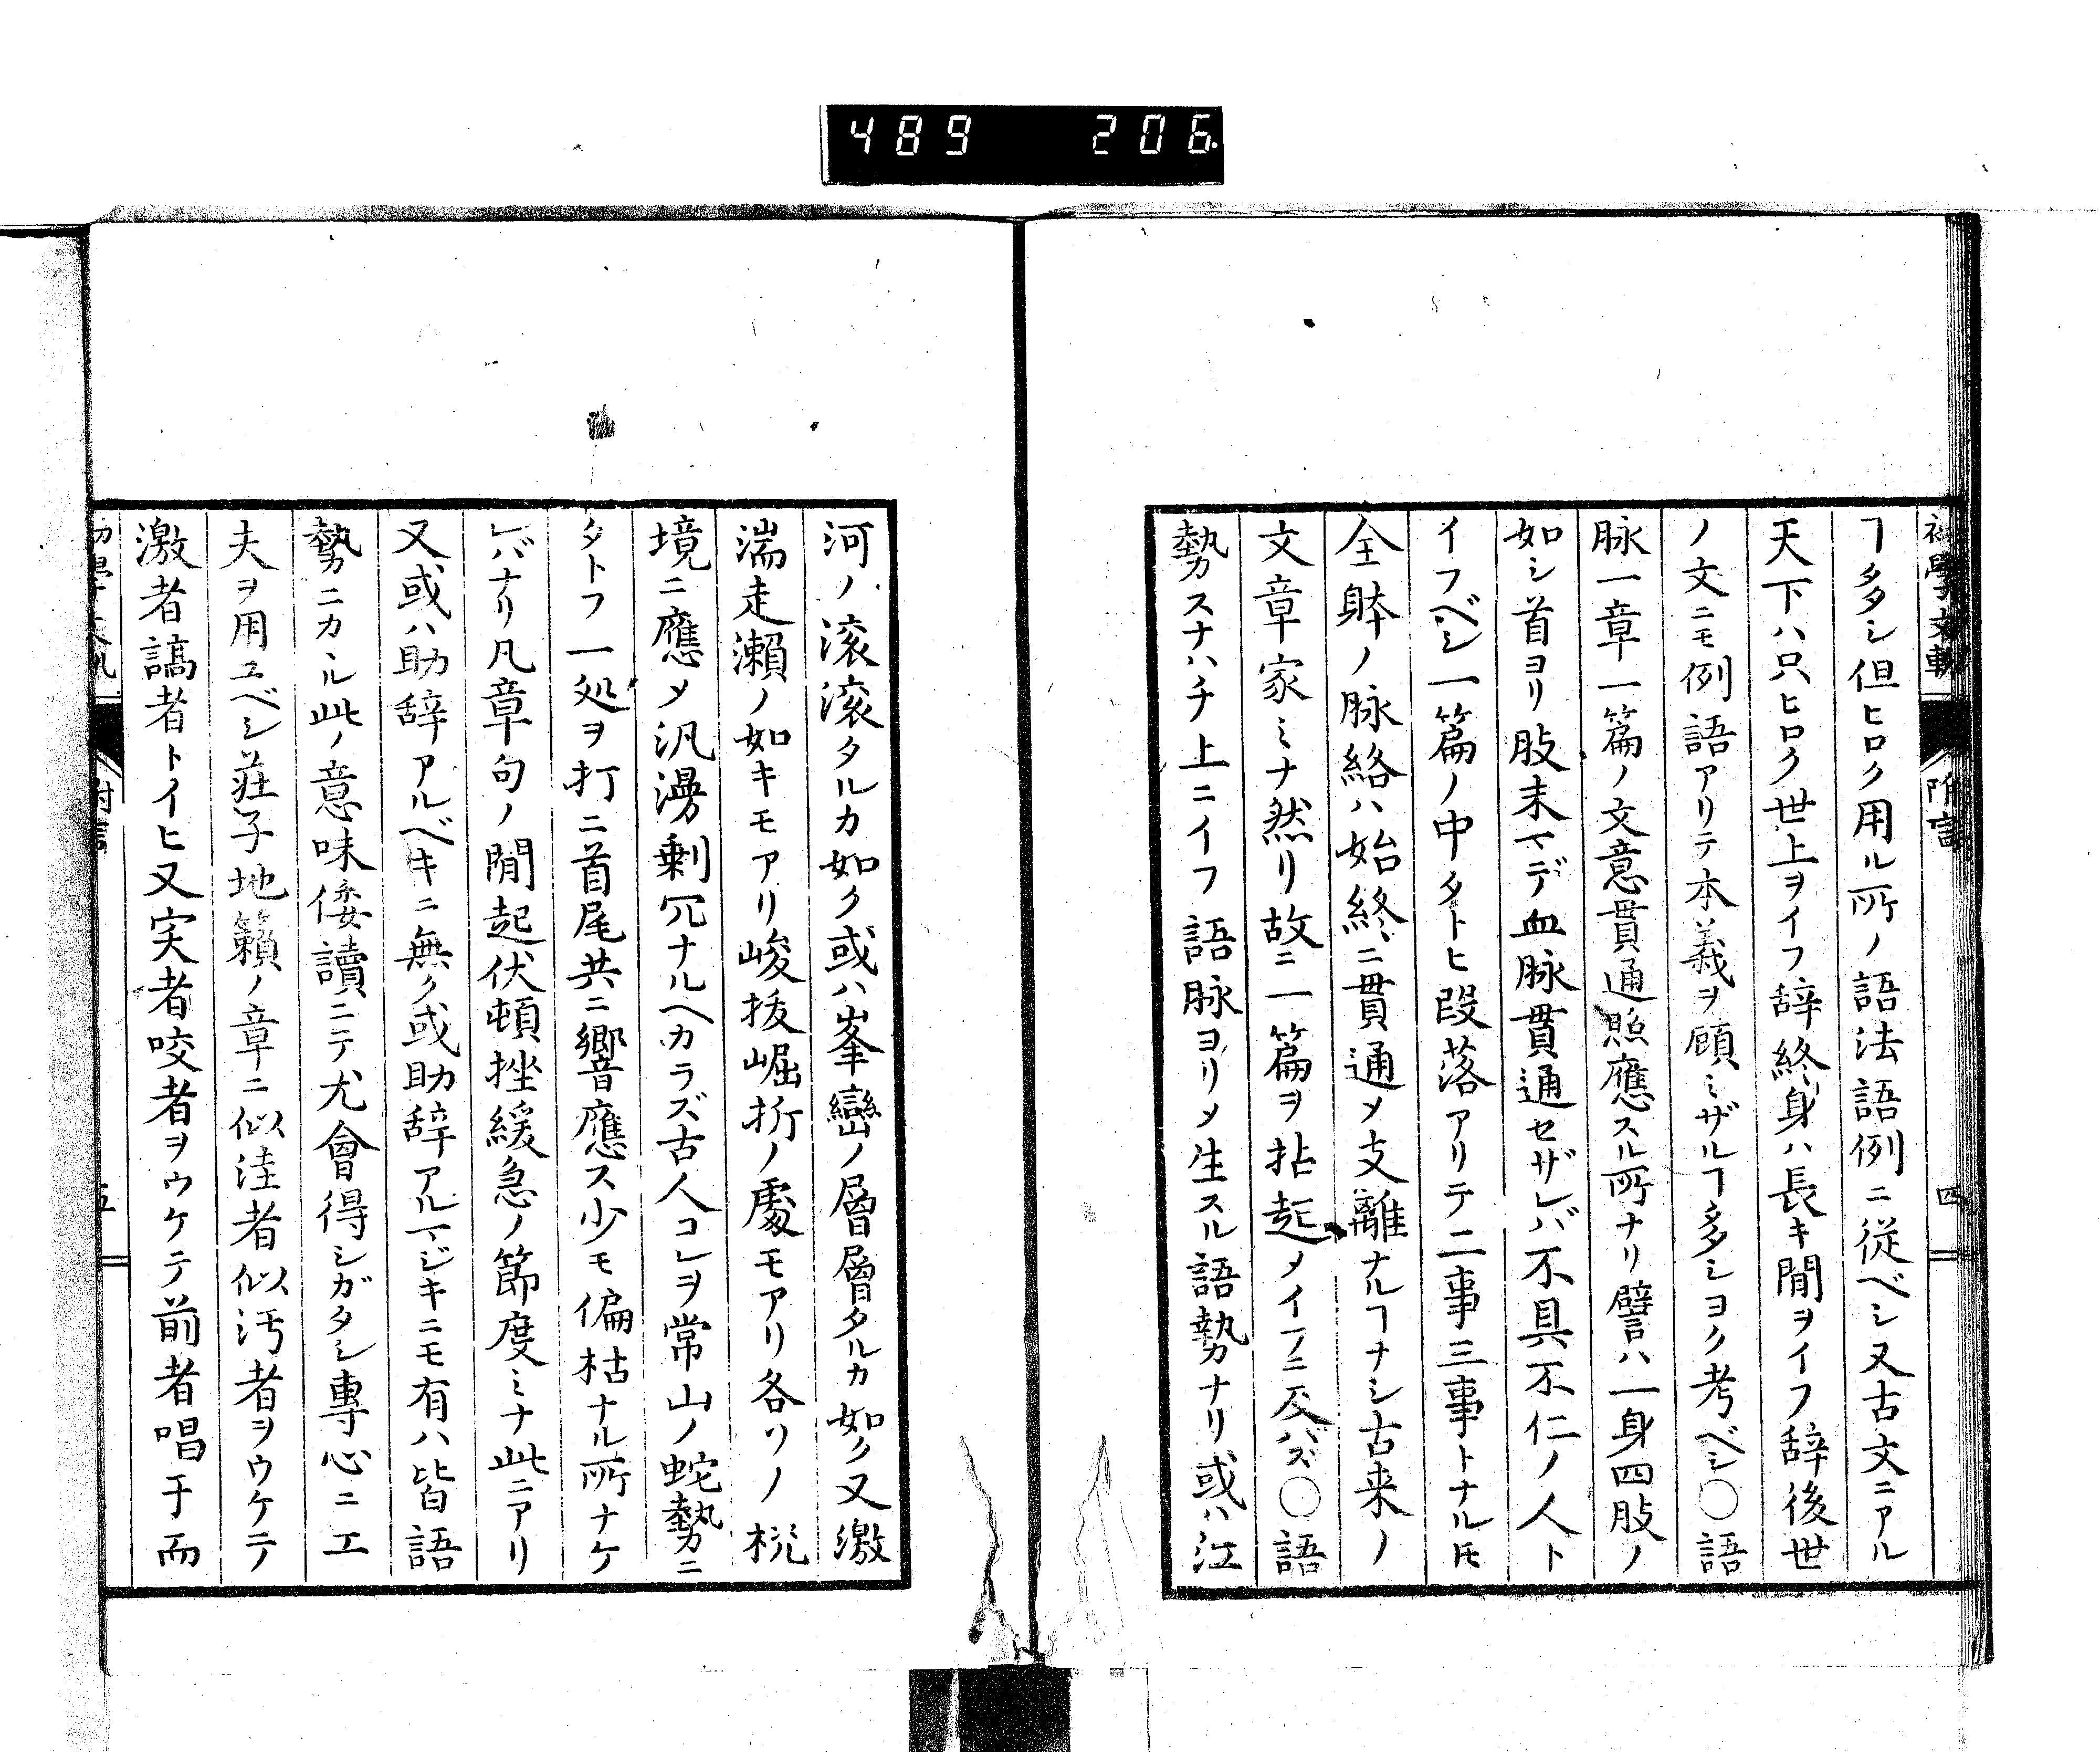 489 206
初學文軌 附言 四
ヿ多シ但ヒロク用ル所ノ語法語例ニ従ベシ又古文ニアル
天下ハ只ヒロク世上ヲイフ辞終身ハ長キ間ヲイフ辞後世
ノ文ニモ例語アリテ本義ヲ顧ミザルヿ多シヨク考ベシ○語
脉一章一篇ノ文意貫通照應スル所ナリ譬ハ一身四肢ノ
如シ首ヨリ肢末マデ血脉貫通セザレバ不具不仁ノ人ト
イフベシ一篇ノ中タトヒ段落アリテ二事三事トナルモ
全躰ノ脉絡ハ始終ニ貫通メ支離ナルヿナシ古来ノ
文章家ミナ然リ故ニ一篇ヲ拈起メイフニ及バズ○語
勢スナハチ上ニイフ語脉ヨリメ生スル語勢ナリ或ハ江
河ノ滚滚タルカ如ク或ハ峯巒ノ層層タルカ如ク又激
湍走瀬ノ如キモアリ峻抜崛折ノ處モアリ各ソノ
境ニ應メ汎濫剰冗ナルヘカラズ古人コレヲ常山ノ蛇勢ニ
タトフ一処ヲ打ニ首尾共ニ響應ス少モ偏枯ナル所ナケ
レバナリ凡章句ノ間起伏頓挫緩急ノ節度ミナ此ニアリ
又或ハ助辞アルベキニ無ク或助辞アルマジキニモ有ハ皆語
勢ニカヽル此ノ意味倭讀ニテ尤會得シガタシ專心ニ工
夫ヲ用ユベシ莊子地籟ノ章ニ似洼者似汚者ヲウケテ
激者謞者トイヒ又宎者咬者ヲウケテ前者唱于而
初學文軌 附言 五